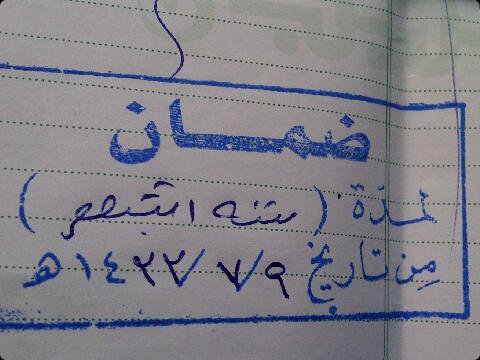 ضمان
لمدة: (سته اشهر)
من تاريخ ٩/٧/١٤٣٣هـ